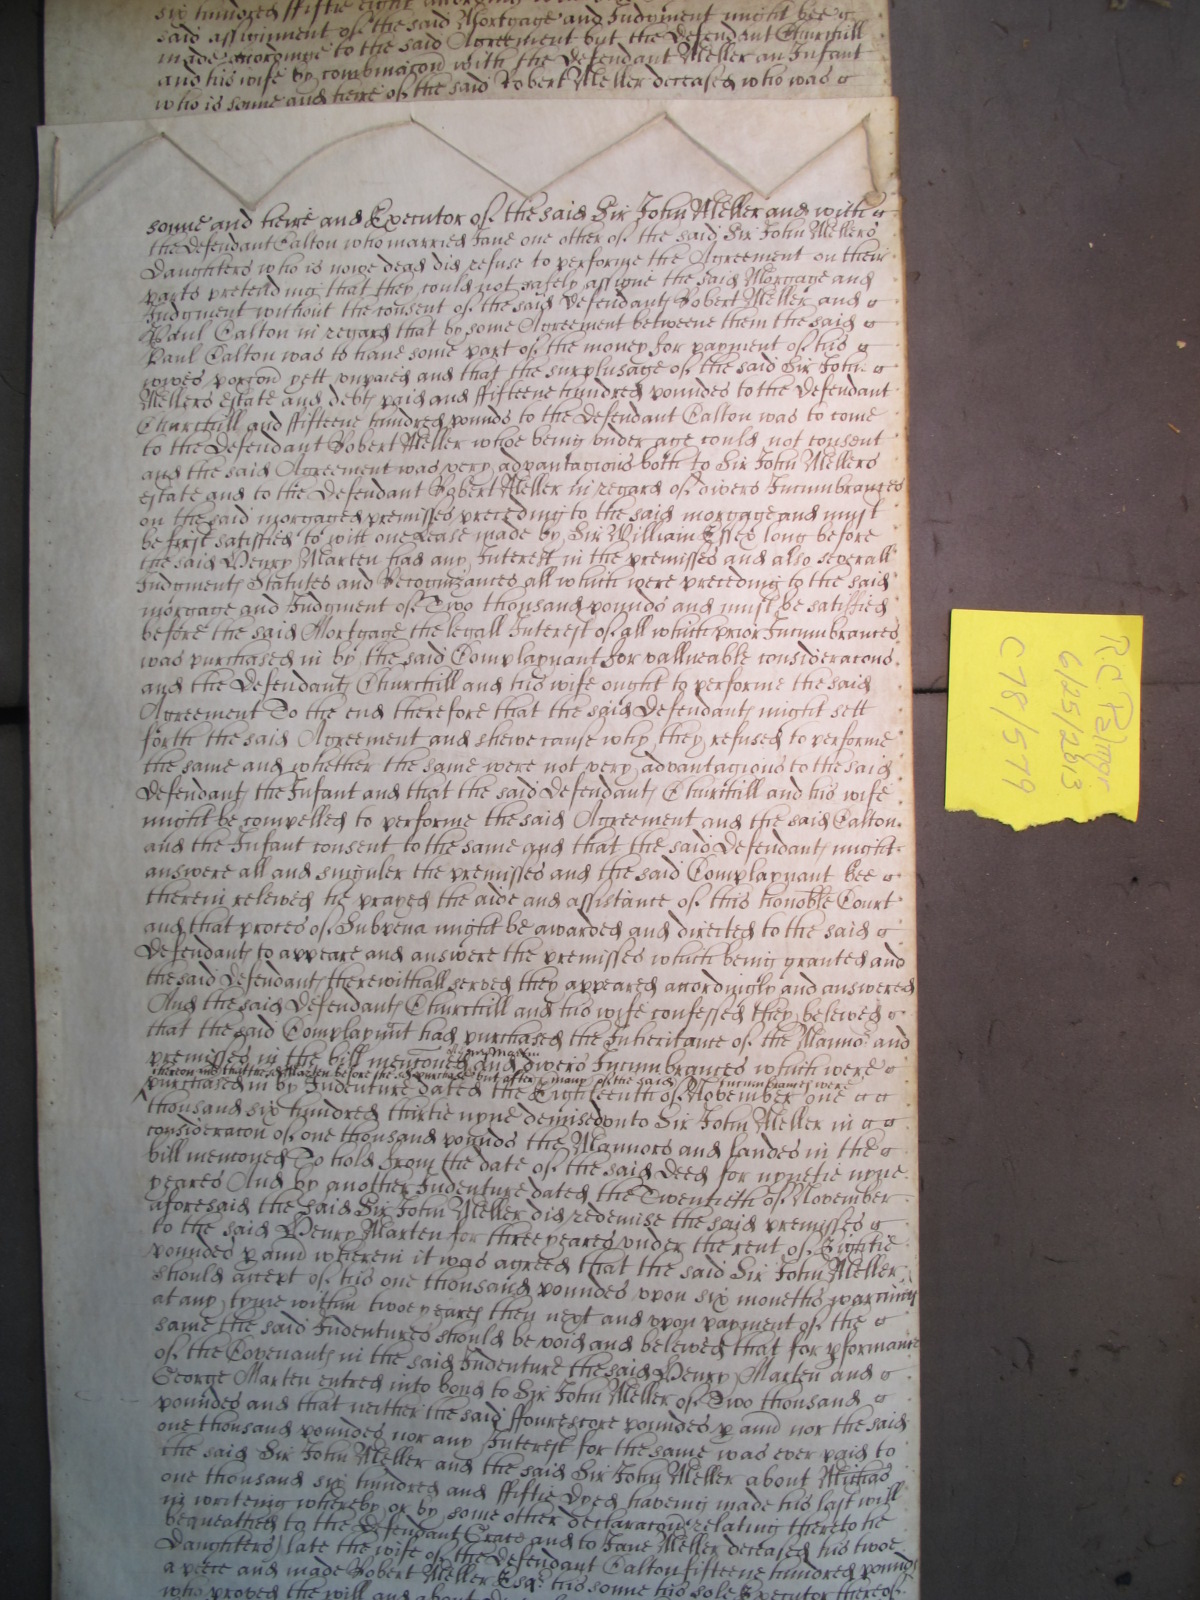 six hundred ffiftie eight
said assignment of the said Mortgage and Judgment might bee
made accordinge to the said Agreement but the defendant Churchill
and his wife by combinacon with the defendant Meller an Infant
who is sonne and heire of the said Robert Meller deceased who was
sonne and heire and Executor of the said Sir John Meller and with
the defendant Calton who married Jane one other of the said Sir John Mellers
Daughters who is nowe dead did refuse to performe the Agreement on their
parts pretending that they could not safely assigne the said Morgage and
Judgment without the consent of the said defendants Robert Meller and
Paul Calton in regard that by some Agreement betweene them the said
Paul Calton was to haue some part of the money for payment of his
wives porcon yett vnpaied and that the surplusage of the said Sir John
Mellers estate and debts paid and ffifteene hundred poundes to the Defendant
Churchill and ffifteene hundred pounds to the defendant Calton was to come
to the Defendant Robert Meller whoe being vnder age could not consent
and the said Agreement was very advantagious both to Sir John Mellers
estate and to the Defendant Robert Meller in regard of divers Incumbrances
on the said morgaged premisses preceding to the said morgage and must
be first satisfied to witt one Lease made by Sir William Essex long before
the said Henry Marten had any Interest in the premisses and also severall
Judgments Statutes and Recognizances all which were preceding to the said
morgage and Judgment of Two thousand pounds and must be satisfied
before the said Mortgage the legall Interest of all which prior Incumbrances
was purchased in by the said Complaynant for valluable consideracons
and the Defendants Churchill and his wife ought to performe the said
Agreement To the end therefore that the said Defendants might sett
forth the said Agreement and shewe cause why they refused to performe
the same and whether the same were not very advantagious to the said
Defendant the Infant and that the said Defendants Churchill and his wife
might be compelled to performe the said Agreement and the said Calton
and the Infant consent to the same and that the said Defendants might
answere all and singuler the premisses and the said Complaynant bee
therein releived he prayed the aide and assistance of this honoble Court
and that proces of Subpena might be awarded and directed to the said
Defendants to appeare and answere the premisses which being granted and
the said Defendants therewithall served they appeared accordingly and answered
And the said Defendants Churchill and his wife confessed they beleived
that the said Complaynt had purchased the Inheritance of the Manno and
premisses in the bill mencioned and divers Incumbrances which were
thereon and that the sd Marten before the sd purchase but after many of the said Incumbrances were
purchased in by Indenture dated the Eighteenth of November one
thousand six hundred thirtie nyne demised vnto Sir John Meller in
consideracon of one thousand pounds the Mannors and landes in the
bill mencioned To hold from the date of the said Deed for nynetie nyne
yeares And by another Indenture dated the Twentieth of November
aforesaid the said Sir John Meller did redemise the said premisses
to the said Henry Marten for three yeares vnder the rent of Eightie
poundes p ann wherein it was agreed that the said Sir John Meller
should accept of his one thousand poundes vpon six moneths warning
at any tyme within twoe yeares then next and vpon payment of the
same the said Indentures should be void and beleived that for pformance
of the Covenants in the said Indenture the said Henry Marten and
George Marten entred into bond to Sir John Meller of Two thousand
poundes and that neither the said ffourescore poundes p ann nor the said
one thousand poundes nor any Interest for the same was ever paid to
the said Sir John Meller and the said Sir John Meller about Michas
one thousand six hundred and ffiftie dyed haveing made his last will
in writeing whereby or by some other declaracon relating thereto he
bequeathed to the Defendant Grace and to Jane Meller deceased his twoe
Daughters late the wife of the Defendant Calton fifteene hundred pounds
a peece and made Robert Meller Esqr his sonne his sole Executor thereof
who proved the will and about
R.C. Palmer
6/25/2013
C78/579